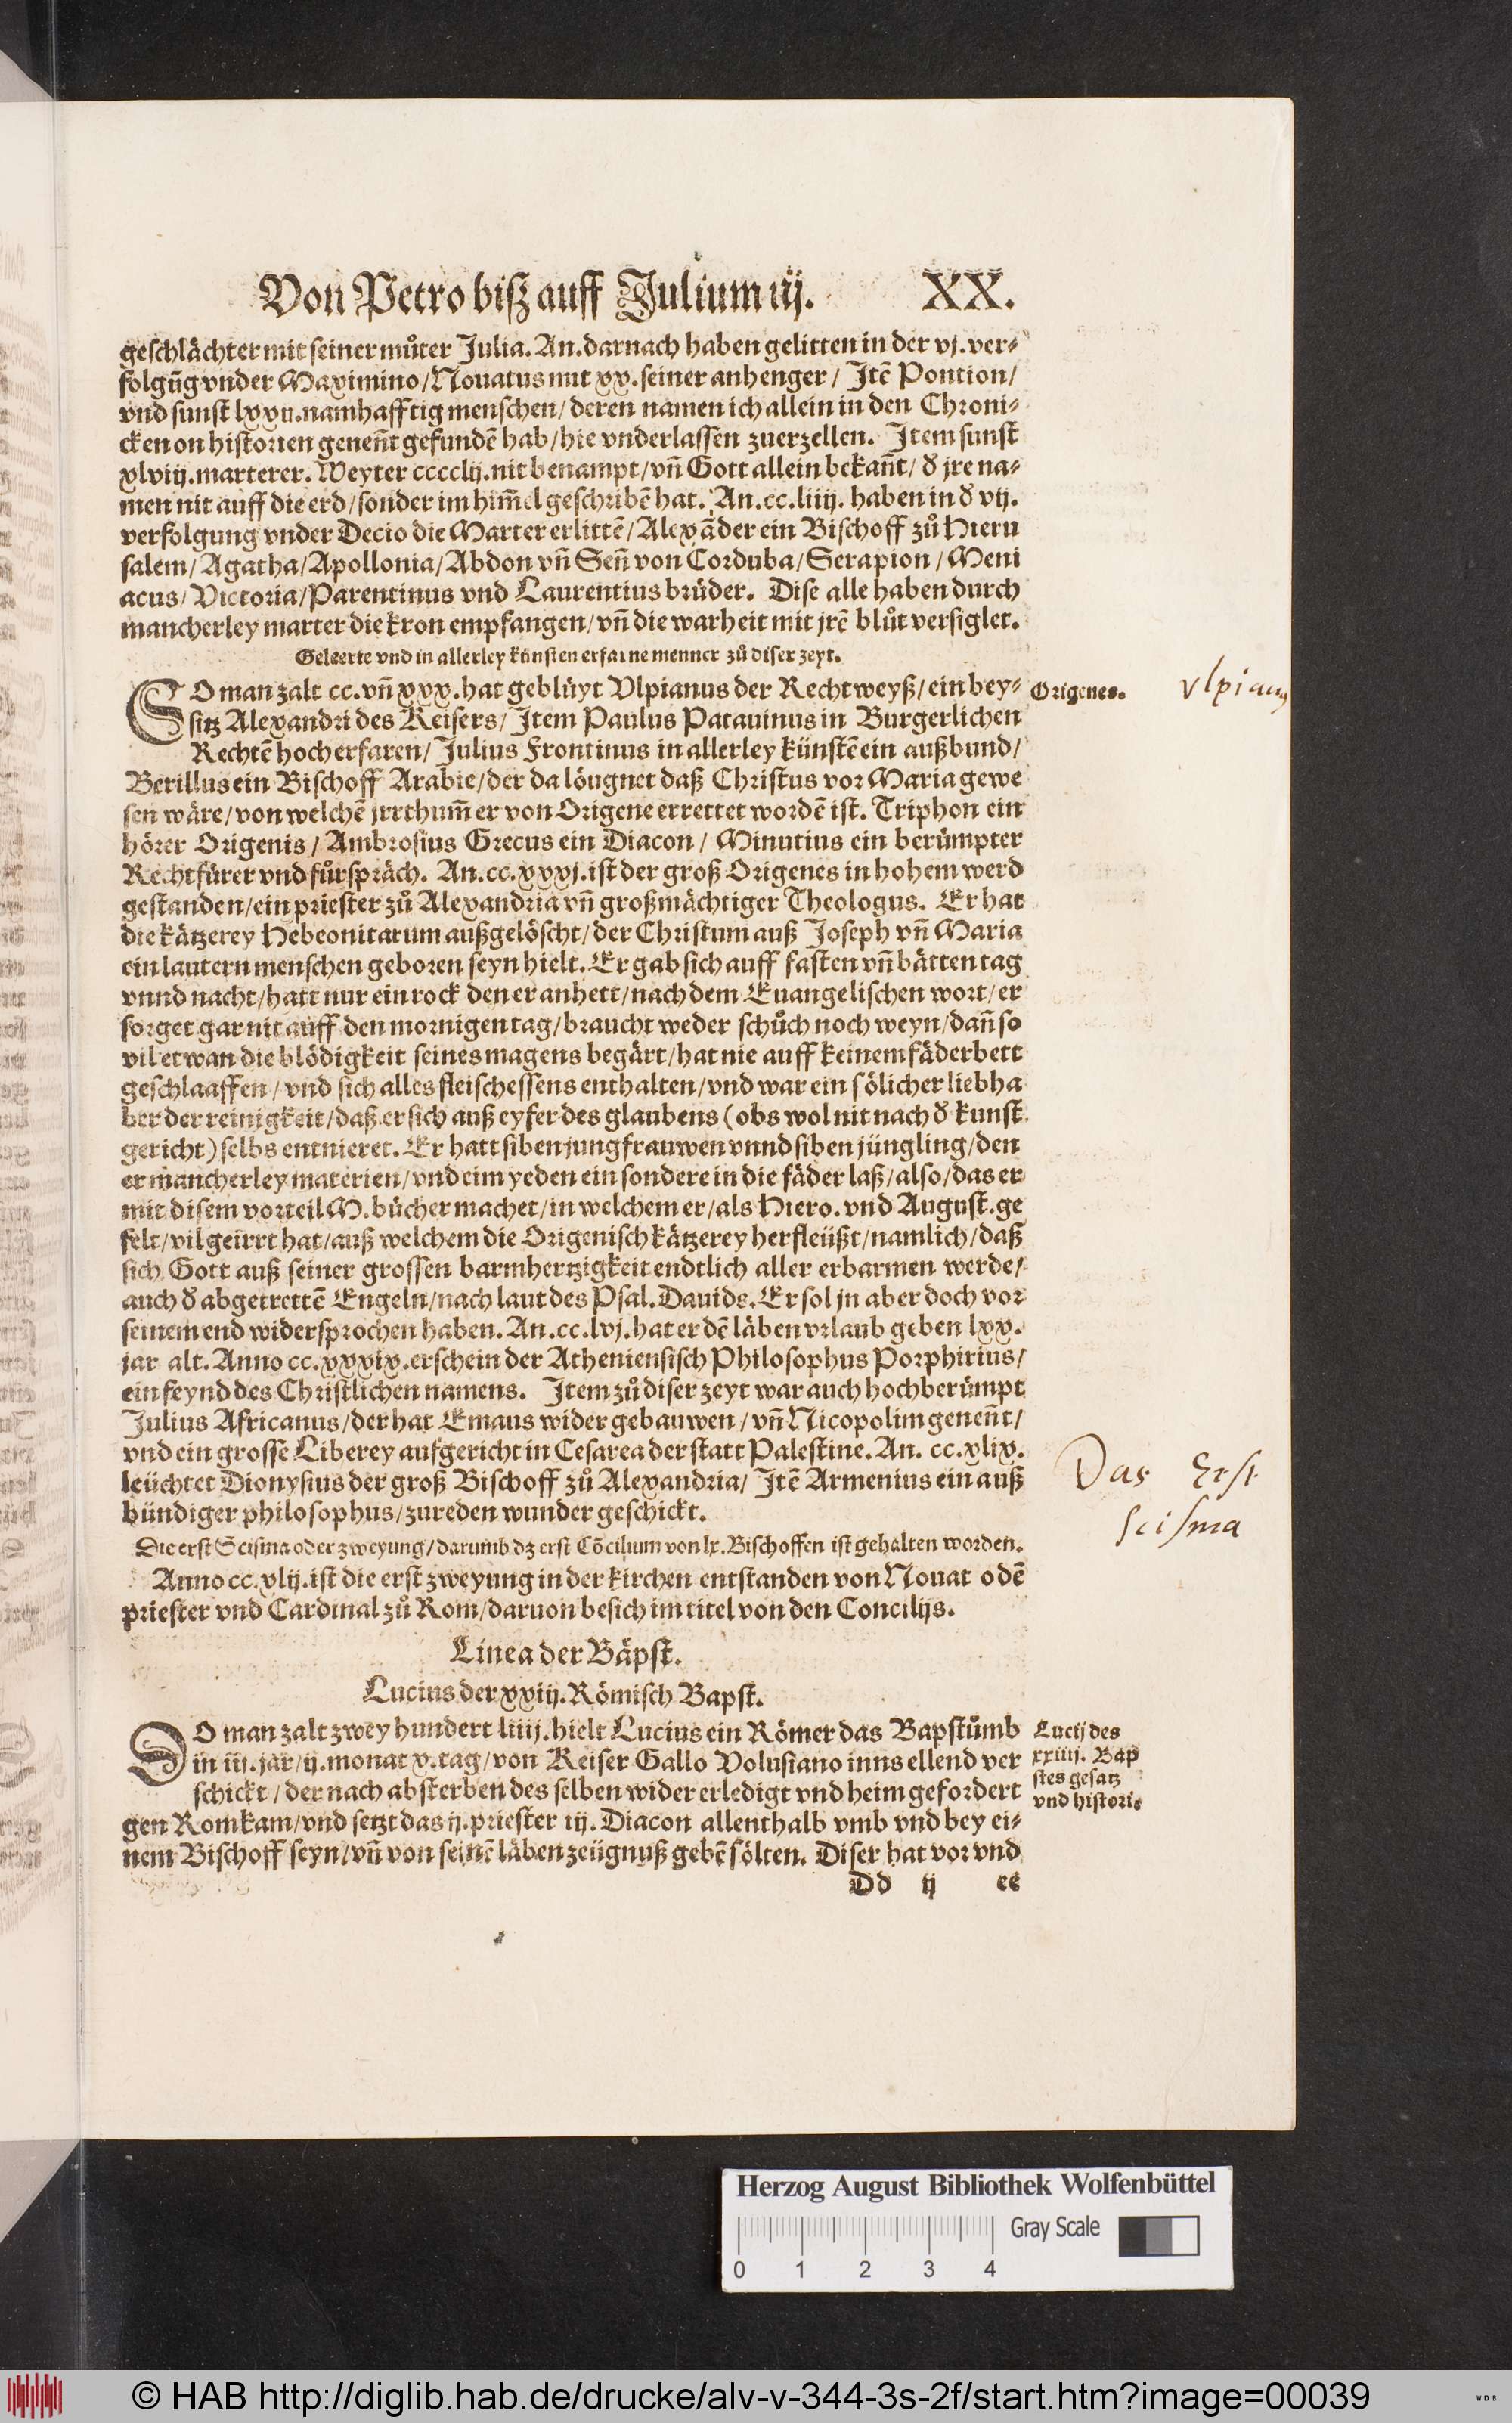 Von Petro biß auff Julium iij. XX.
geschlächter mit seiner můter Julia. An. darnach haben gelitten in der vj. ver⸗
folgũg vnder Maximino/Nouatus mit xx. seiner anhenger/ Jtẽ Pontion/
vnd sunst lxxii. namhafftig menschen/ deren namen ich allein in den Chroni⸗
cken on historien geneñt gefundẽ hab/hie vnderlassen zuerzellen. Jtem sunst
xlviij. marterer. Weyter cccclij. nit benampt/vñ Gott allein bekañt/ ð jre na⸗
men nit auff die erd/sonder im him̃el geschribẽ hat. An. cc. liiij. haben in ð vij.
verfolgung vnder Decio die Marter erlittẽ/Alexãder ein Bischoff zů Hieru
salem/Agatha/Apollonia/Abdon vñ Señ von Corduba/Serapion/Meni
acus/Victoria/Parentinus vnd Laurentius brüder. Dise alle haben durch
mancherley marter die kron empfangen/vñ die warheit mit jrẽ blůt versiglet.
Geleerte vnd in allerley künsten erfarne menner zů diser zeyt.
SO man zalt cc. vñ xxx. hat geblüyt Vlpianus der Rechtweyß/ein bey⸗
sitz Alexandri des Keisers/ Jtem Paulus Patauinus in Burgerlichen
Rechtẽ hocherfaren/Julius Frontinus in allerley künstẽ ein außbund/
Berillus ein Bischoff Arabie/der da löugnet daß Christus vor Maria gewe
sen wäre/von welchẽ jrrthum̃ er von Origene errettet wordẽ ist. Triphon ein
hörer Origenis/Ambrosius Grecus ein Diacon/ Minutius ein berümpter
Rechtfürer vnd fürspräch. An. cc. xxxj. ist der groß Origenes in hohem werd
gestanden/ein priester zů Alexandria vñ großmächtiger Theologus. Er hat
die kätzerey Hebeonitarum außgelöscht/der Christum auß Joseph vñ Maria
ein lautern menschen geboren seyn hielt. Er gab sich auff fasten vñ bätten tag
vnnd nacht/hatt nur ein rock den er anhett/nach dem Euangelischen wort/er
sorget gar nit auff den mornigen tag/braucht weder schůch noch weyn/dañ so
vil etwan die blödigkeit seines magens begärt/hat nie auff keinem fäderbett
geschlaaffen/vnd sich alles fleischessens enthalten/vnd war ein sölicher liebha
ber der reinigkeit/daß er sich auß eyfer des glaubens (obs wol nit nach ð kunst
gericht) selbs entnieret. Er hatt siben jungfrauwen vnnd siben jüngling/den
er mancherley materien/vnd eim yeden ein sondere in die fäder laß/also/das er
mit disem vorteil M. bücher machet/in welchem er/als Hiero. vnd August. ge
felt/vil geirrt hat/auß welchem die Origenisch kätzerey herfleüßt/namlich/daß
sich Gott auß seiner grossen barmhertzigkeit endtlich aller erbarmen werde/
auch ð abgetrettẽ Engeln/nach laut des Psal. Dauids. Er sol jn aber doch vor
seinem end widersprochen haben. An. cc. lvj. hat er dẽ läben vrlaub geben lxx.
jar alt. Anno cc. xxxix. erschein der Atheniensisch Philosophus Porphirius/
ein feynd des Christlichen namens. Jtem zů diser zeyt war auch hochberümpt
Julius Africanus/der hat Emaus wider gebauwen/vñ Nicopolim geneñt/
vnd ein grosse Liberey aufgericht in Cesarea der statt Palestine. An. cc. xlix.
leüchtet Dionysius der groß Bischoff zů Alexandria/ Jtẽ Armenius ein auß
bündiger philosophus/zureden wunder geschickt.
Die erst Scisma oder zweyung/darumb dz erst Cõcilium von lx. Bischoffen ist gehalten worden.
Anno cc. xlij. ist die erst zweyung in der kirchen entstanden von Nouat o dẽ
priester vnd Cardinal zů Rom/daruon besich im titel von den Concilijs.
Linea der Bäpst.
Lucius der xxiij. Römisch Bapst.
DO man zalt zwey hundert liiij. hielt Lucius ein Römer das Bapstůmb
in iij. jar/ij. monat x. tag/von Keiser Gallo Volusiano inns ellend ver
schickt/der nach absterben des selben wider erledigt vnd heim gefordert
gen Rom kam/vnd setzt das ij. priester iij. Diacon allenthalb vmb vnd bey ei⸗
nem Bischoff seyn/vñ von seinẽ läben zeügnuß gebẽ sölten. Diser hat vor vnd
Dd ij ee
Origenes.
Vlpianus
Das Erst
scisma
Lucij des
xxiiij. Bap
stes gesatz
vnd historie
Herzog August Bibliothek Wolfenbüttel
Gray Scale
0 1 2 3 4
© HAB http://diglib.hab.de/drucke/alv-v-344-3s-2f/start.htm?image=00039
WDB